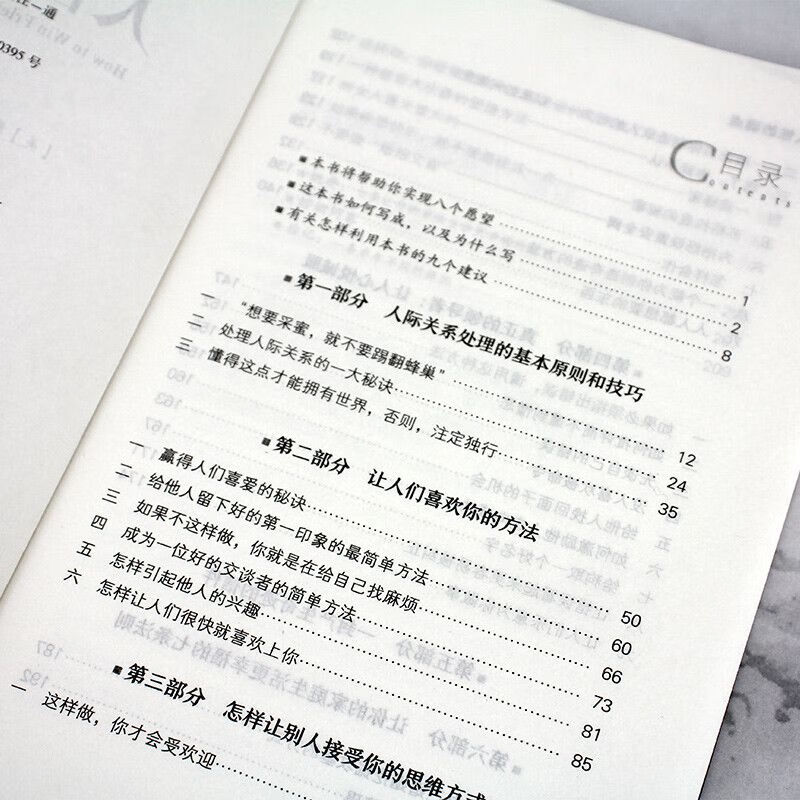 How to Win
0395 号
目录
Contents
■本书将帮助你实现八个愿望 1
■这本书如何写成，以及为什么写 2
■有关怎样利用本书的九个建议 8
■第一部分 人际关系处理的基本原则和技巧
一 “想要采蜜，就不要踢翻蜂巢” 12
二 处理人际关系的一大秘诀 24
三 懂得这点才能拥有世界，否则，注定独行 35
■第二部分 让人们喜欢你的方法
一 赢得人们喜爱的秘诀 50
二 给他人留下好的第一印象的最简单方法 60
三 如果不这样做，你就是在给自己找麻烦 66
四 成为一位好的交谈者的简单方法 73
五 怎样引起他人的兴趣 81
六 怎样让人们很快就喜欢上你 85
■第三部分 怎样让别人接受你的思维方式
一 这样做，你才会受欢迎